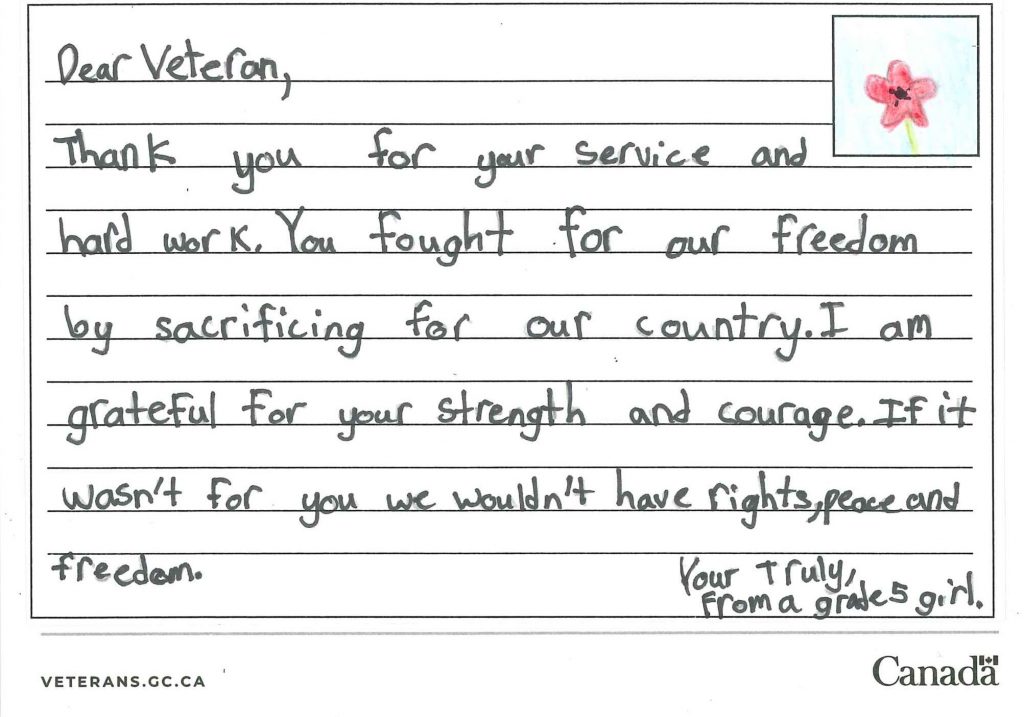 Dear Veteran,
Thank you for your service and
hard work. You fought for our freedom
by sacrificing for our country. I am
grateful for your strength and courage. If it
wasn't for you we wouldn't have rights, peace and
freedom.
Your Truly,
From a grade 5 girl.
VETERANS.GC.CA
Canada